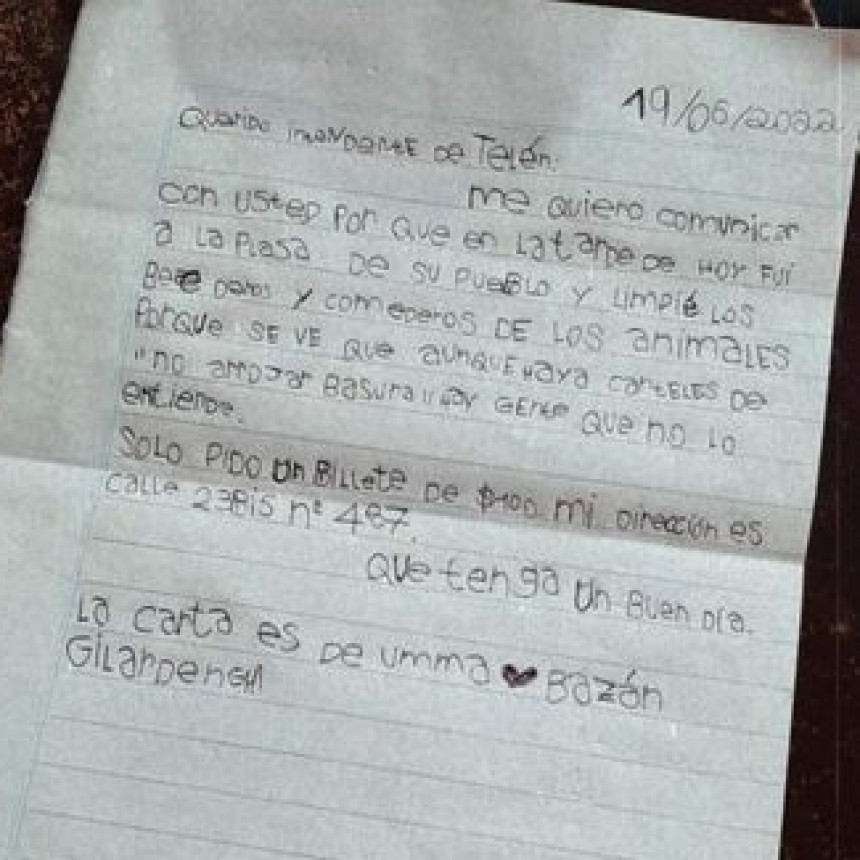 19/06/2022
Querido intendente de Telén:
me quiero comunicar
con usted por que en la tarde de hoy fui
a la plasa de su pueblo y limpié los
bebederos y comederos de los animales
porque se ve que aunque haya carteles de
"no arrojar basura" hay gente que no lo
entiende.
Solo pido un billete de $100 mi dirección es
calle 23Bis nº 467.
Que tenga un buen día.
La carta es de umma ♥ Bazán